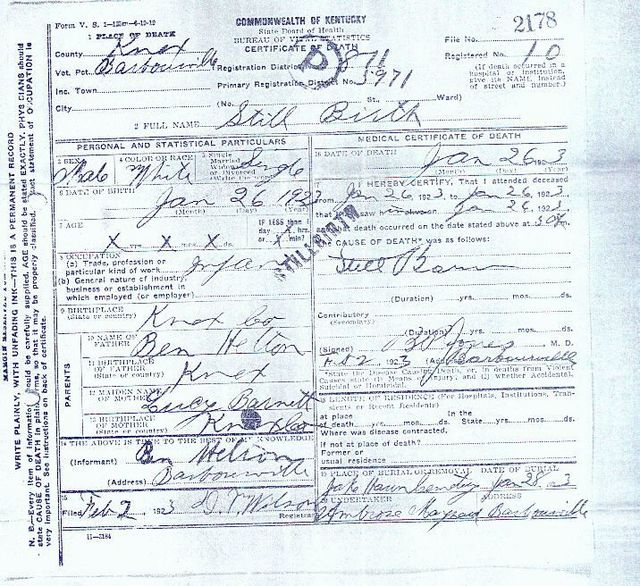 Form V. S. 1-
COMMONWEALTH OF KENTUCKY
State Board of Health
BUREAU OF VITAL STATISTICS
CERTIFICATE OF DEATH
File No. 2178
Registered No. 10
(If death occurred in a Hospital or Institution, give its NAME, instead of street and number.)
1 PLACE OF DEATH
County Knox
Vot. Pct. Barbourville
Registration District 871
Inc. Town
Primary Registration District No. 5971
City (No. St., Ward)
2 FULL NAME Still Birth
PERSONAL AND STATISTICAL PARTICULARS
3 SEX Male
4 COLOR OR RACE White
5 Single Married Widowed or Divorced (Write the word) Single
6 DATE OF BIRTH Jan 26 1923
(Month) (Day) (Year)
7 AGE X yrs. X mos. X ds.
IF LESS than 1 day X hrs. or X min?
8 OCCUPATION
(a) Trade, profession or particular kind of work Infant
(b) General nature of industry, business or establishment in which employed (or employer)
9 BIRTHPLACE (State or country) Knox Co
PARENTS
10 NAME OF FATHER Ben Helton
11 BIRTHPLACE OF FATHER (State or country) Knox
12 MAIDEN NAME OF MOTHER Lucy Barnett
13 BIRTHPLACE OF MOTHER (State or country) Knox Co
14 THE ABOVE IS TRUE TO THE BEST OF MY KNOWLEDGE
(Informant) Ben Helton
(Address) Barbourville
15 Filed Feb 2 1923 D. T. Wilson Registrar
11-3184
MEDICAL CERTIFICATE OF DEATH
16 DATE OF DEATH Jan 26 1923
(Month) (Day) (Year)
I HEREBY CERTIFY, That I attended deceased
from Jan 26 1923 to Jan 26 1923
that I last saw him alive on Jan 26 1923
and that death occurred on the date stated above at
CAUSE OF DEATH* was as follows:
STILLBIRTH
Still Born
(Duration) yrs. mos. ds.
Contributory (Secondary)
(Duration) yrs. mos. ds.
(Signed) Jones M. D.
2 1923 (Address) Barbourville
*State the Disease Causing Death, or, in deaths from Violent Causes state (1) Means of Injury; and (2) whether Accidental, Suicidal or Homicidal.
18 LENGTH OF RESIDENCE (For Hospitals, Institutions, Transients or Recent Residents)
At place of death yrs. mos. ds. In the State yrs. mos. ds.
Where was disease contracted, if not at place of death?
Former or usual residence
19 PLACE OF BURIAL OR REMOVAL DATE OF BURIAL
Jan 28 23
20 UNDERTAKER ADDRESS
Ambrose Barbourville
MARGIN RESERVED FOR
WRITE PLAINLY, WITH UNFADING INK—THIS IS A PERMANENT RECORD
N. B.—Every item of information should be carefully supplied. AGE should be stated EXACTLY. PHYSICIANS should
state CAUSE OF DEATH in plain terms, so that it may be properly classified. Exact statement of OCCUPATION is
very important. See instructions on back of certificate.